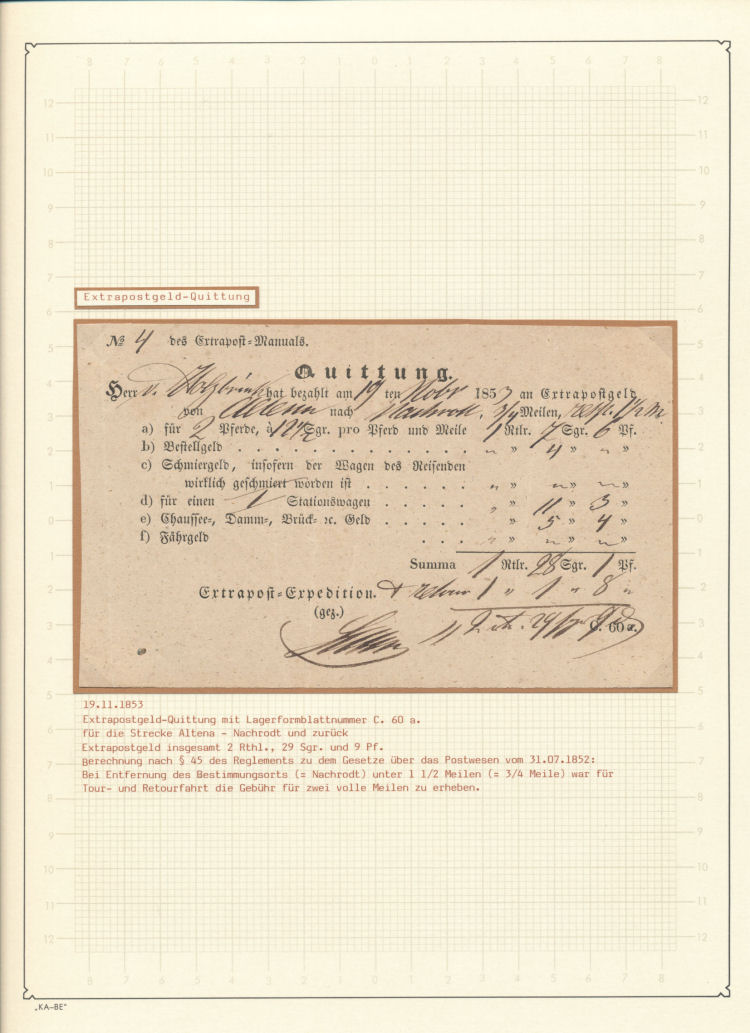 Extrapostgeld-Quittung
№ 4 des Extrapost-Manuals.
Quittung.
Herr v. Holtzbrinck hat bezahlt am 19 ten Nobr 1853 an Extrapostgeld
von Altena nach Nachrodt, 3/4 Meilen, resp. 1 1/2 M.
a) für 2 Pferde, à 12 1/2 Sgr. pro Pferd und Meile 1 Rtlr. 7 Sgr. 6 Pf.
b) Bestellgeld . . . . . . . . . . . . . „ » 4 » „ »
c) Schmiergeld, insofern der Wagen des Reisenden
wirklich geschmiert worden ist . . . . . . „ » „ » „ »
d) für einen 1 Stationswagen . . . . . „ » 11 » 3 »
e) Chaussee-, Damm-, Brück- ꝛc. Geld . . . . . » 5 » 4 »
f) Fährgeld . . . „ » „ » „ »
Summa 1 Rtlr. 28 Sgr. 1 Pf.
Extrapost-Expedition. + retour 1 „ 1 „ 8 „
(gez.)
2 rt. 29 9 C. 60 a.
19.11.1853
Extrapostgeld-Quittung mit Lagerformblattnummer C. 60 a.
für die Strecke Altena - Nachrodt und zurück
Extrapostgeld insgesamt 2 Rthl., 29 Sgr. und 9 Pf.
Berechnung nach § 45 des Reglements zu dem Gesetze über das Postwesen vom 31.07.1852:
Bei Entfernung des Bestimmungsorts (= Nachrodt) unter 1 1/2 Meilen (= 3/4 Meile) war für
Tour- und Retourfahrt die Gebühr für zwei volle Meilen zu erheben.
„KA-BE"